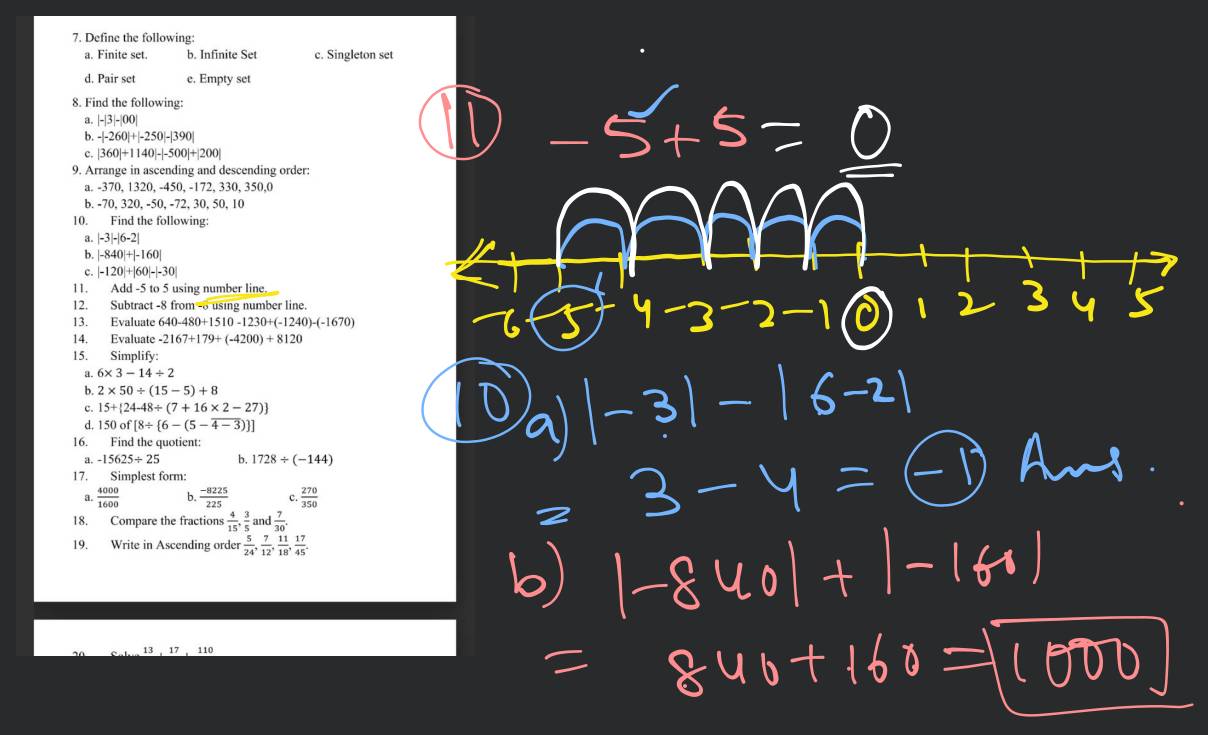 7. Define the following:
a. Finite set. b. Infinite Set c. Singleton set
d. Pair set e. Empty set
8. Find the following:
a. |-|3|-|00|
b. -|-260|+|-250|-|390|
c. |360|+1140|-|-500|+|200|
9. Arrange in ascending and descending order:
a. -370, 1320, -450, -172, 330, 350,0
b. -70, 320, -50, -72, 30, 50, 10
10. Find the following:
a. |-3|-|6-2|
b. |-840|+|-160|
c. |-120|+|60|-|-30|
11. Add -5 to 5 using number line.
12. Subtract -8 from using number line.
13. Evaluate 640-480+1510 -1230+(-1240)-(-1670)
14. Evaluate -2167+179+ (-4200) + 8120
15. Simplify:
a. 6× 3 − 14 ÷ 2
b. 2 × 50 ÷ (15 − 5) + 8
c. 15+{24-48÷ (7 + 16 × 2 − 27)}
d. 150 of [8÷ {6 − (5 − 4 − 3)}]
16. Find the quotient:
a. -15625÷ 25 b. 1728 ÷ (−144)
17. Simplest form:
a. 4000/1600 b. −8225/225 c. 270/350
18. Compare the fractions 4/15, 3/5 and 7/30.
19. Write in Ascending order 5/24, 7/12, 11/18, 17/45.
13 17 110
11
-5+5=0
-6 -5 -4 -3 -2 -1 0 1 2 3 4 5
10 a) |-3| - |6-2|
= 3 - 4 = -1 Ans.
b) |-840| + |-160|
= 840+160=1000